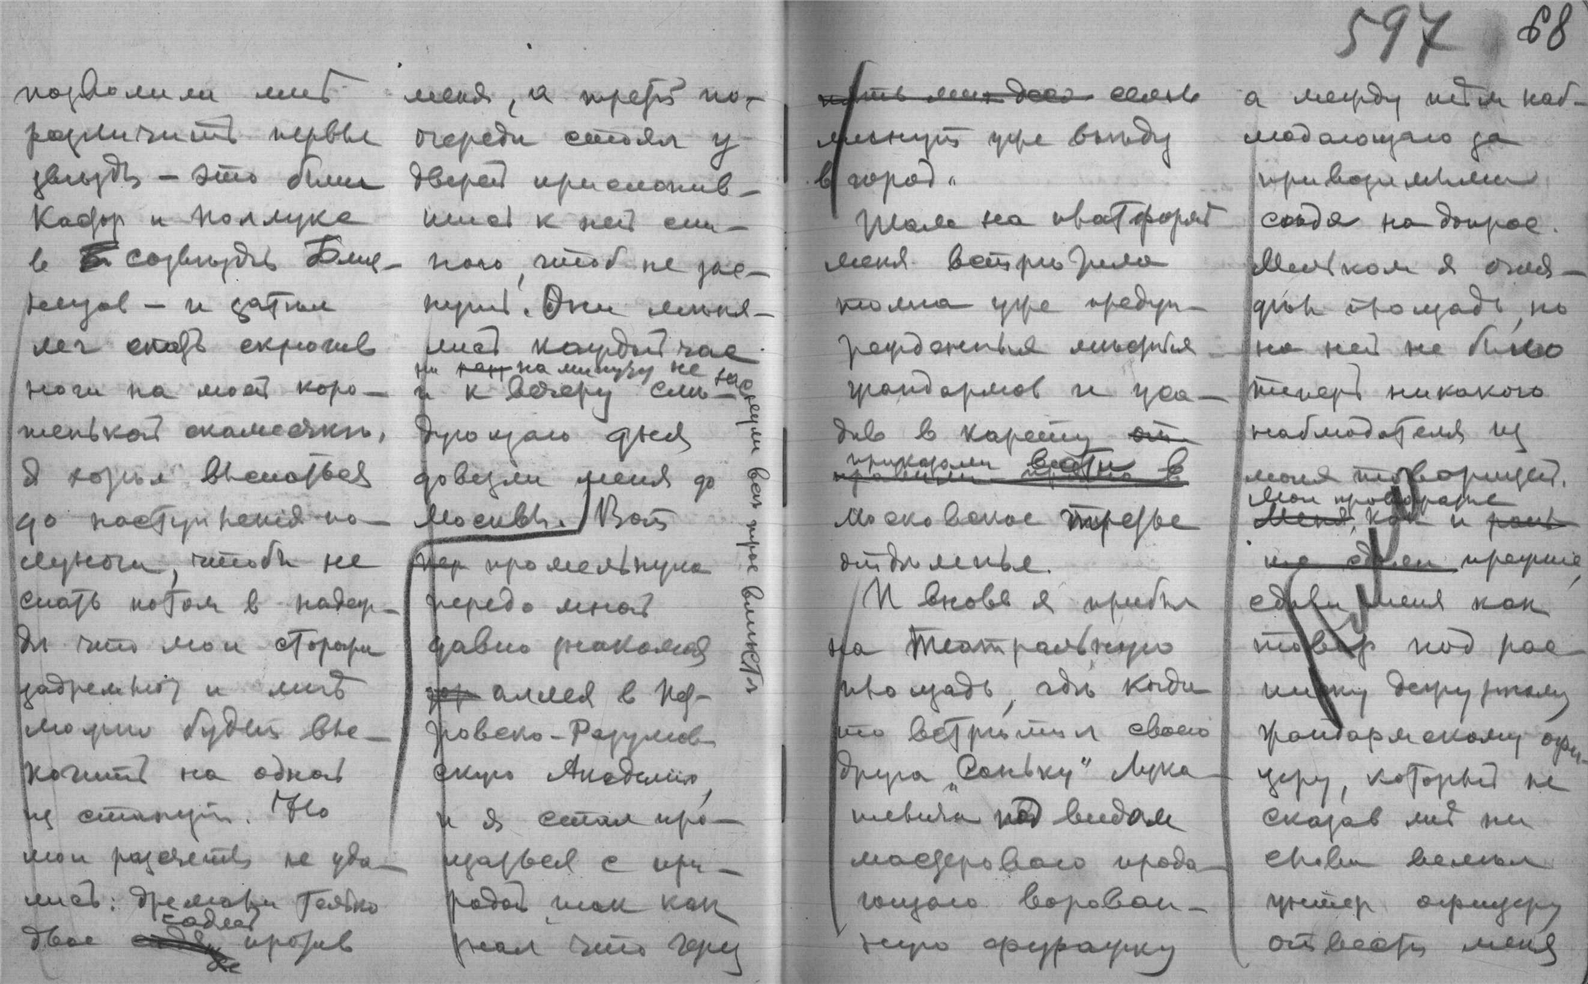 597 68
позволили мнѣ
различить первыя
звѣзды — это были
Кастор и Поллукс
в созвѣздіи Близ-
нецов — и затѣм
лег спать скрючив
ноги на моей коро-
тенькой скамеечкѣ.
Я хотѣл выспаться
до наступленія по-
луночи, чтобы не
спать потом в надеж-
дѣ что мои сторожа
задремлют и мнѣ
можно будет вы-
скочить на одной
из станцій. Но
мои разсчеты не уда-
лись: дремали только
двое сидя против
меня, а третій по-
очереди стоял у
дверей прислонив-
шись к ней спи-
ною, чтоб не зас-
нуть. Они мѣня-
лись каждый час
ни на минуту не заснули всѣ трое вмѣстѣ
и к вечеру слѣ-
дующаго дня
довезли меня до
Москвы. Вот
промелькнула
передо мной
давно знакомая
аллея в Пет-
ровско-Разумов-
скую Академію,
и я стал про-
щаться с при-
родой так как
знал что через
семь
минут уже въѣду
в город.
Там на платформѣ
меня встрѣтила
толпа уже предуп-
режденных мѣстных
жандармов и уса-
див в карету
приказали везти в
московское третье
отдѣленье.
И вновь я прибыл
на Театральную
площадь, гдѣ когда
то встрѣтил своего
друга „Саньку" Лука-
шевича под видом
мастерового прода-
ющаго ворован-
ную фуражку
а между тѣм наб-
людающаго за
привозимыми
сюда на допрос.
Мельком я огля-
дѣл площадь, но
на ней не было
теперь никакого
наблюдателя из
моих товарищей.
Мои провожатые
как и прежде,
сдали меня как
товар под рас-
писку дежурному
жандармскому офи-
церу, который не
сказав мнѣ ни
слова велѣл
унтер офицеру
отвести меня